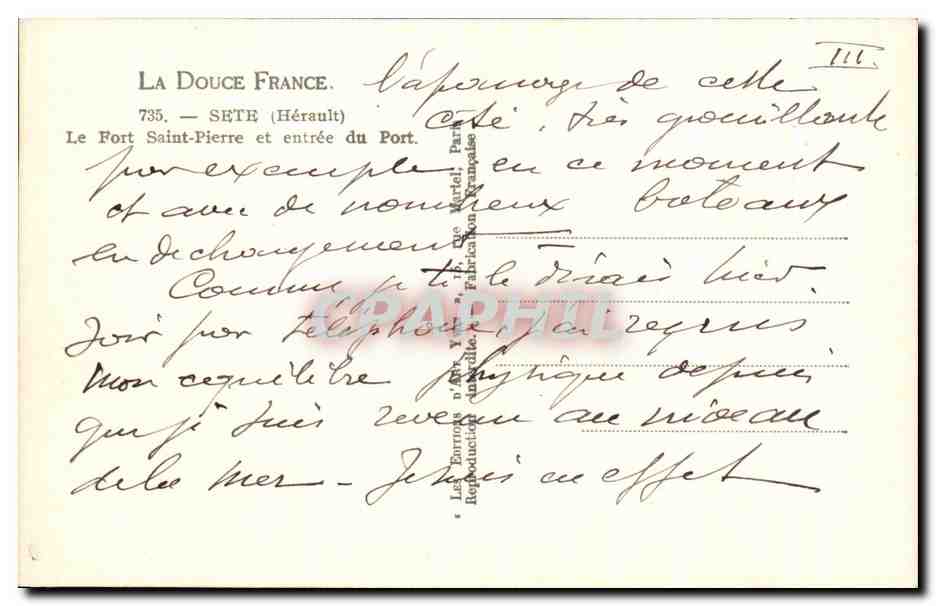 III.
LA DOUCE FRANCE.
735. — SETE (Hérault)
Le Fort Saint-Pierre et entrée du Port.
l'apanage de cette
Cité, très grouillante
par exemple en ce moment
et avec de nombreux bateaux
en déchargement
Comme je te le disais hier
soir par téléphone, j'ai repris
mon equilibre physique depuis
que je suis revenu au niveau
de la mer - Je suis en effet
« LES EDITIONS D'ART YVON », 15, rue Martel, Paris
Reproduction interdite. Fabrication Française
CPAPHIL